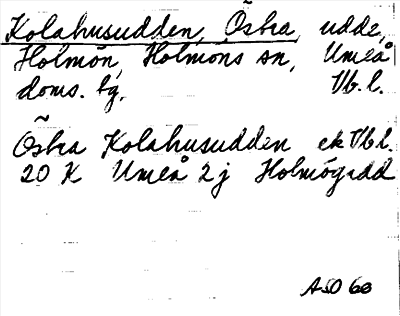 Kolahusudden, Östra, udde,
Holmön, Holmöns sn, Umeå
doms. tg, Vb. l.
Östra Kolahusudden ek Vb l.
20 K Umeå 2 j Holmögadd
ASO 66